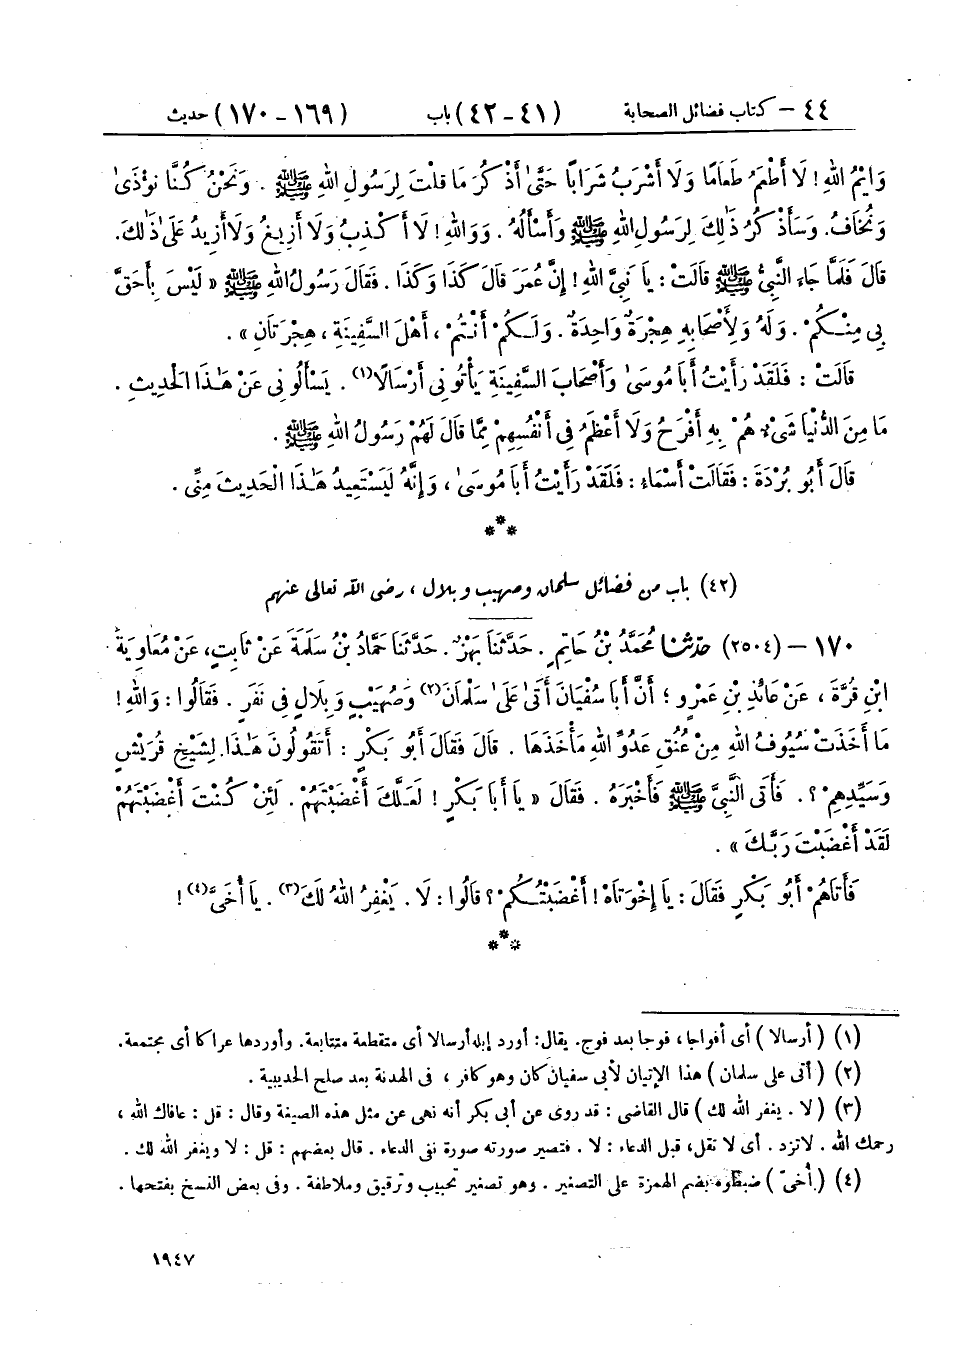 ٤٤ – كتاب فضائل الصحابة (٤١ – ٤٢) باب (١٦٩ – ١٧٠) حديث
وَايْمُ اللهِ! لَا أَطْعَمُ طَعَامًا وَلَا أَشْرَبُ شَرَابًا حَتَّىٰ أَذْكُرَ مَا قُلْتَ لِرَسُولِ اللهِ ﷺ . وَنَحْنُ كُنَّا نُؤْذَىٰ
وَنُخَافُ. وَسَأَذْكُرُ ذَٰلِكَ لِرَسُولِ اللهِ ﷺ وَأَسْأَلُهُ . وَوَاللهِ! لَا أَكْذِبُ وَلَا أَزِيغُ وَلَا أَزِيدُ عَلَىٰ ذَٰلِكَ.
قَالَ فَلَمَّا جَاءَ النَّبِيُّ ﷺ قَالَتْ : يَا نَبِيَّ اللهِ! إِنَّ عُمَرَ قَالَ كَذَا وَكَذَا . فَقَالَ رَسُولُ اللهِ ﷺ « لَيْسَ بِأَحَقَّ
بِي مِنْكُمْ . وَلَهُ وَلِأَصْحَابِهِ هِجْرَةٌ وَاحِدَةٌ . وَلَكُمْ أَنْتُمْ ، أَهْلَ السَّفِينَةِ ، هِجْرَتَانِ » .
قَالَتْ : فَلَقَدْ رَأَيْتُ أَبَا مُوسَىٰ وَأَصْحَابَ السَّفِينَةِ يَأْتُونِي أَرْسَالًا(١) . يَسْأَلُونِي عَنْ هَٰذَا الْحَدِيثِ .
مَا مِنَ الدُّنْيَا شَيْءٌ هُمْ بِهِ أَفْرَحُ وَلَا أَعْظَمُ فِي أَنْفُسِهِمْ مِمَّا قَالَ لَهُمْ رَسُولُ اللهِ ﷺ .
قَالَ أَبُو بُرْدَةَ : فَقَالَتْ أَسْمَاءُ : فَلَقَدْ رَأَيْتُ أَبَا مُوسَىٰ ، وَإِنَّهُ لَيَسْتَعِيدُ هَٰذَا الْحَدِيثَ مِنِّي .
(٤٢) باب من فضائل سلمان وصهيب وبلال ، رضى الله تعالى عنهم
١٧٠ – (٢٥٠٤) حَدَّثَنَا مُحَمَّدُ بْنُ حَاتِمٍ . حَدَّثَنَا بَهْزٌ . حَدَّثَنَا حَمَّادُ بْنُ سَلَمَةَ عَنْ ثَابِتٍ، عَنْ مُعَاوِيَةَ
ابْنِ قُرَّةَ ، عَنْ عَائِذِ بْنِ عَمْرٍو ؛ أَنَّ أَبَا سُفْيَانَ أَتَىٰ عَلَىٰ سَلْمَانَ(٢) وَصُهَيْبٍ وَبِلَالٍ فِي نَفَرٍ . فَقَالُوا : وَاللهِ!
مَا أَخَذَتْ سُيُوفُ اللهِ مِنْ عُنُقِ عَدُوِّ اللهِ مَأْخَذَهَا . قَالَ فَقَالَ أَبُو بَكْرٍ : أَتَقُولُونَ هَٰذَا لِشَيْخِ قُرَيْشٍ
وَسَيِّدِهِمْ ؟. فَأَتَى النَّبِيَّ ﷺ فَأَخْبَرَهُ . فَقَالَ « يَا أَبَا بَكْرٍ! لَعَلَّكَ أَغْضَبْتَهُمْ . لَئِنْ كُنْتَ أَغْضَبْتَهُمْ
لَقَدْ أَغْضَبْتَ رَبَّكَ » .
فَأَتَاهُمْ أَبُو بَكْرٍ فَقَالَ : يَا إِخْوَتَاهْ! أَغْضَبْتُكُمْ ؟ قَالُوا : لَا . يَغْفِرُ اللهُ لَكَ(٣) . يَا أُخَىَّ(٤) !
(١) ( أرسالا ) أى أفواجا، فوجا بعد فوج. يقال: أورد إبله أرسالا أى متقطعة متتابعة. وأوردها عراكا أى مجتمعة.
(٢) ( أتى على سلمان ) هذا الإتيان لأبى سفيان كان وهو كافر ، فى الهدنة بعد صلح الحديبية .
(٣) ( لا . يغفر الله لك ) قال القاضى : قد روى عن أبى بكر أنه نهى عن مثل هذه الصيغة وقال : قل : عافاك الله ،
رحمك الله . لا تزد . أى لا تقل، قبل الدعاء : لا . فتصير صورته صورة نفى الدعاء . قال بعضهم : قل : لا ويغفر الله لك .
(٤) ( أُخىّ ) ضبطوه بضم الهمزة على التصغير . وهو تصغير تحبيب وترقيق وملاطفة . وفى بعض النسخ بفتحها .
١٩٤٧